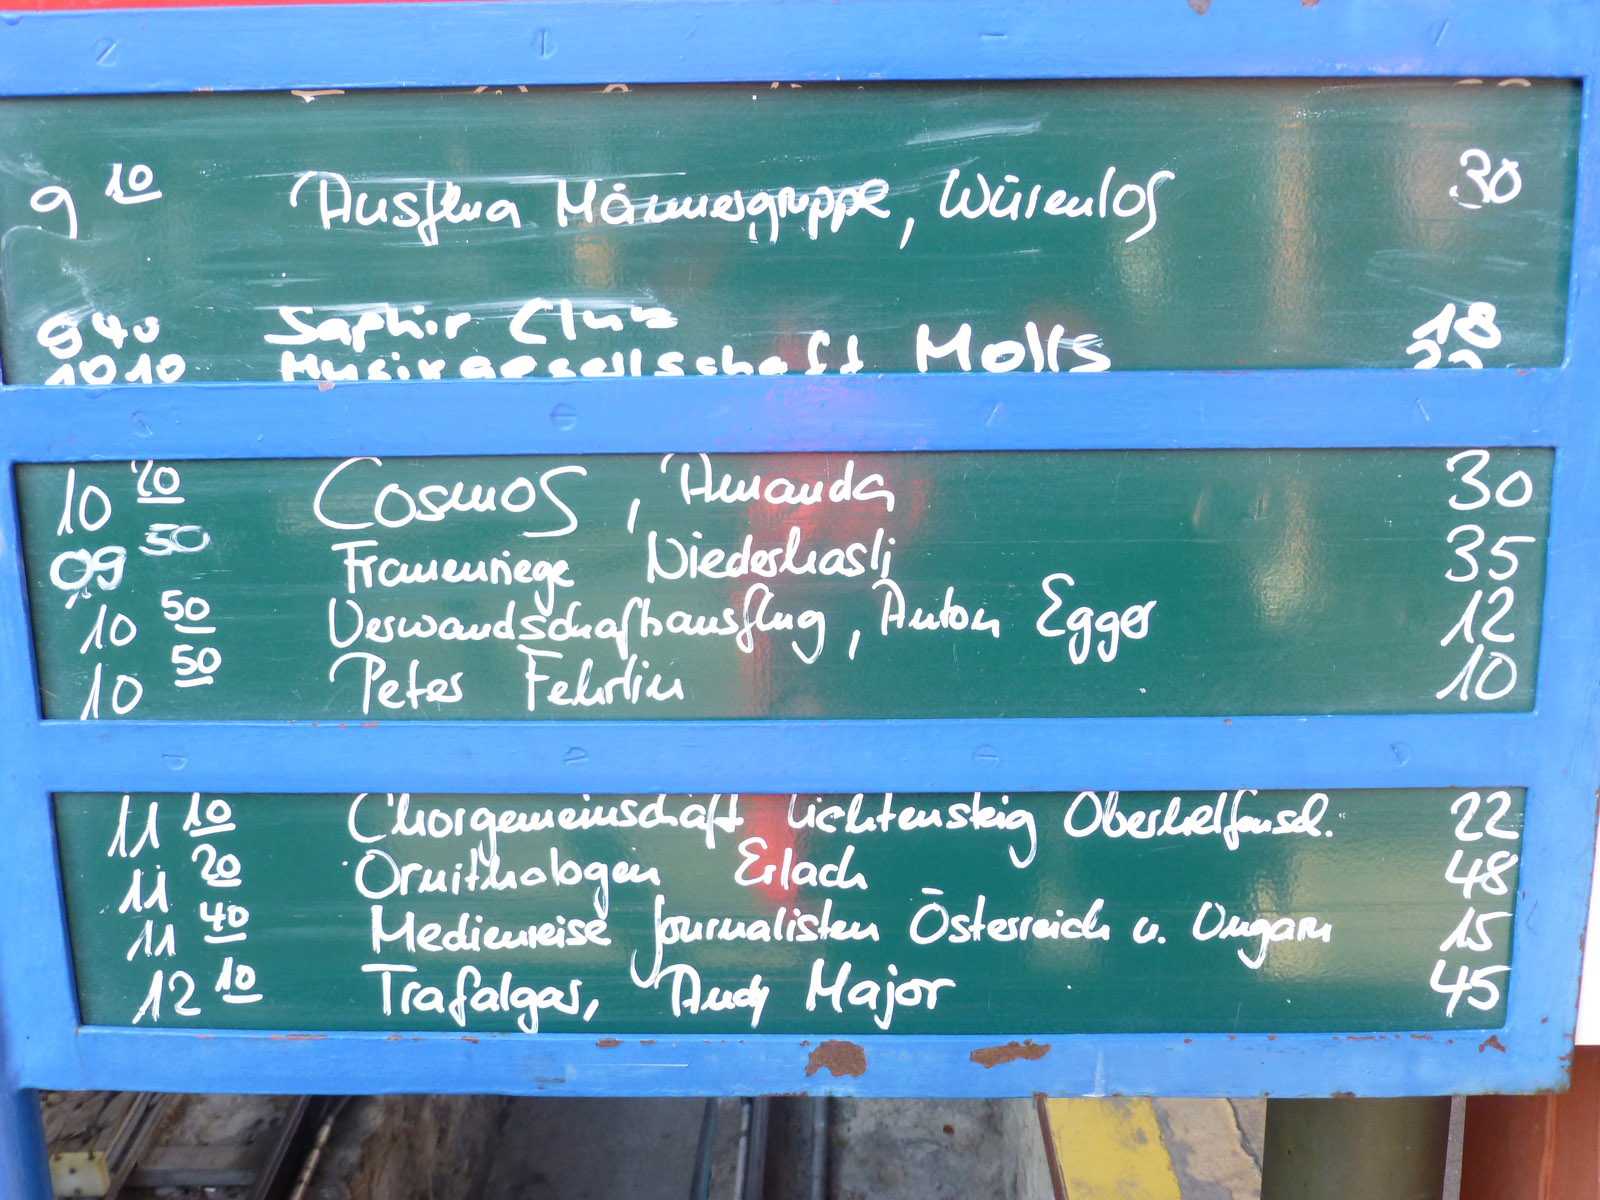 9 10 Ausflug Männergruppe, Würenlos 30
9 40 Saphir Club 18
10 10 Musikgesellschaft Molls 22
10 20 Cosmos, Amanda 30
09 50 Frauenriege Niederhasli 35
10 50 Verwandschaftsausflug, Anton Egger 12
10 50 Peter Fehrlin 10
11 10 Chorgemeinschaft Lichtensteig Oberhelfensch. 22
11 20 Ornithologen Erlach 48
11 40 Medienreise Journalisten Österreich u. Ungarn 15
12 10 Trafalgar, Andy Major 45